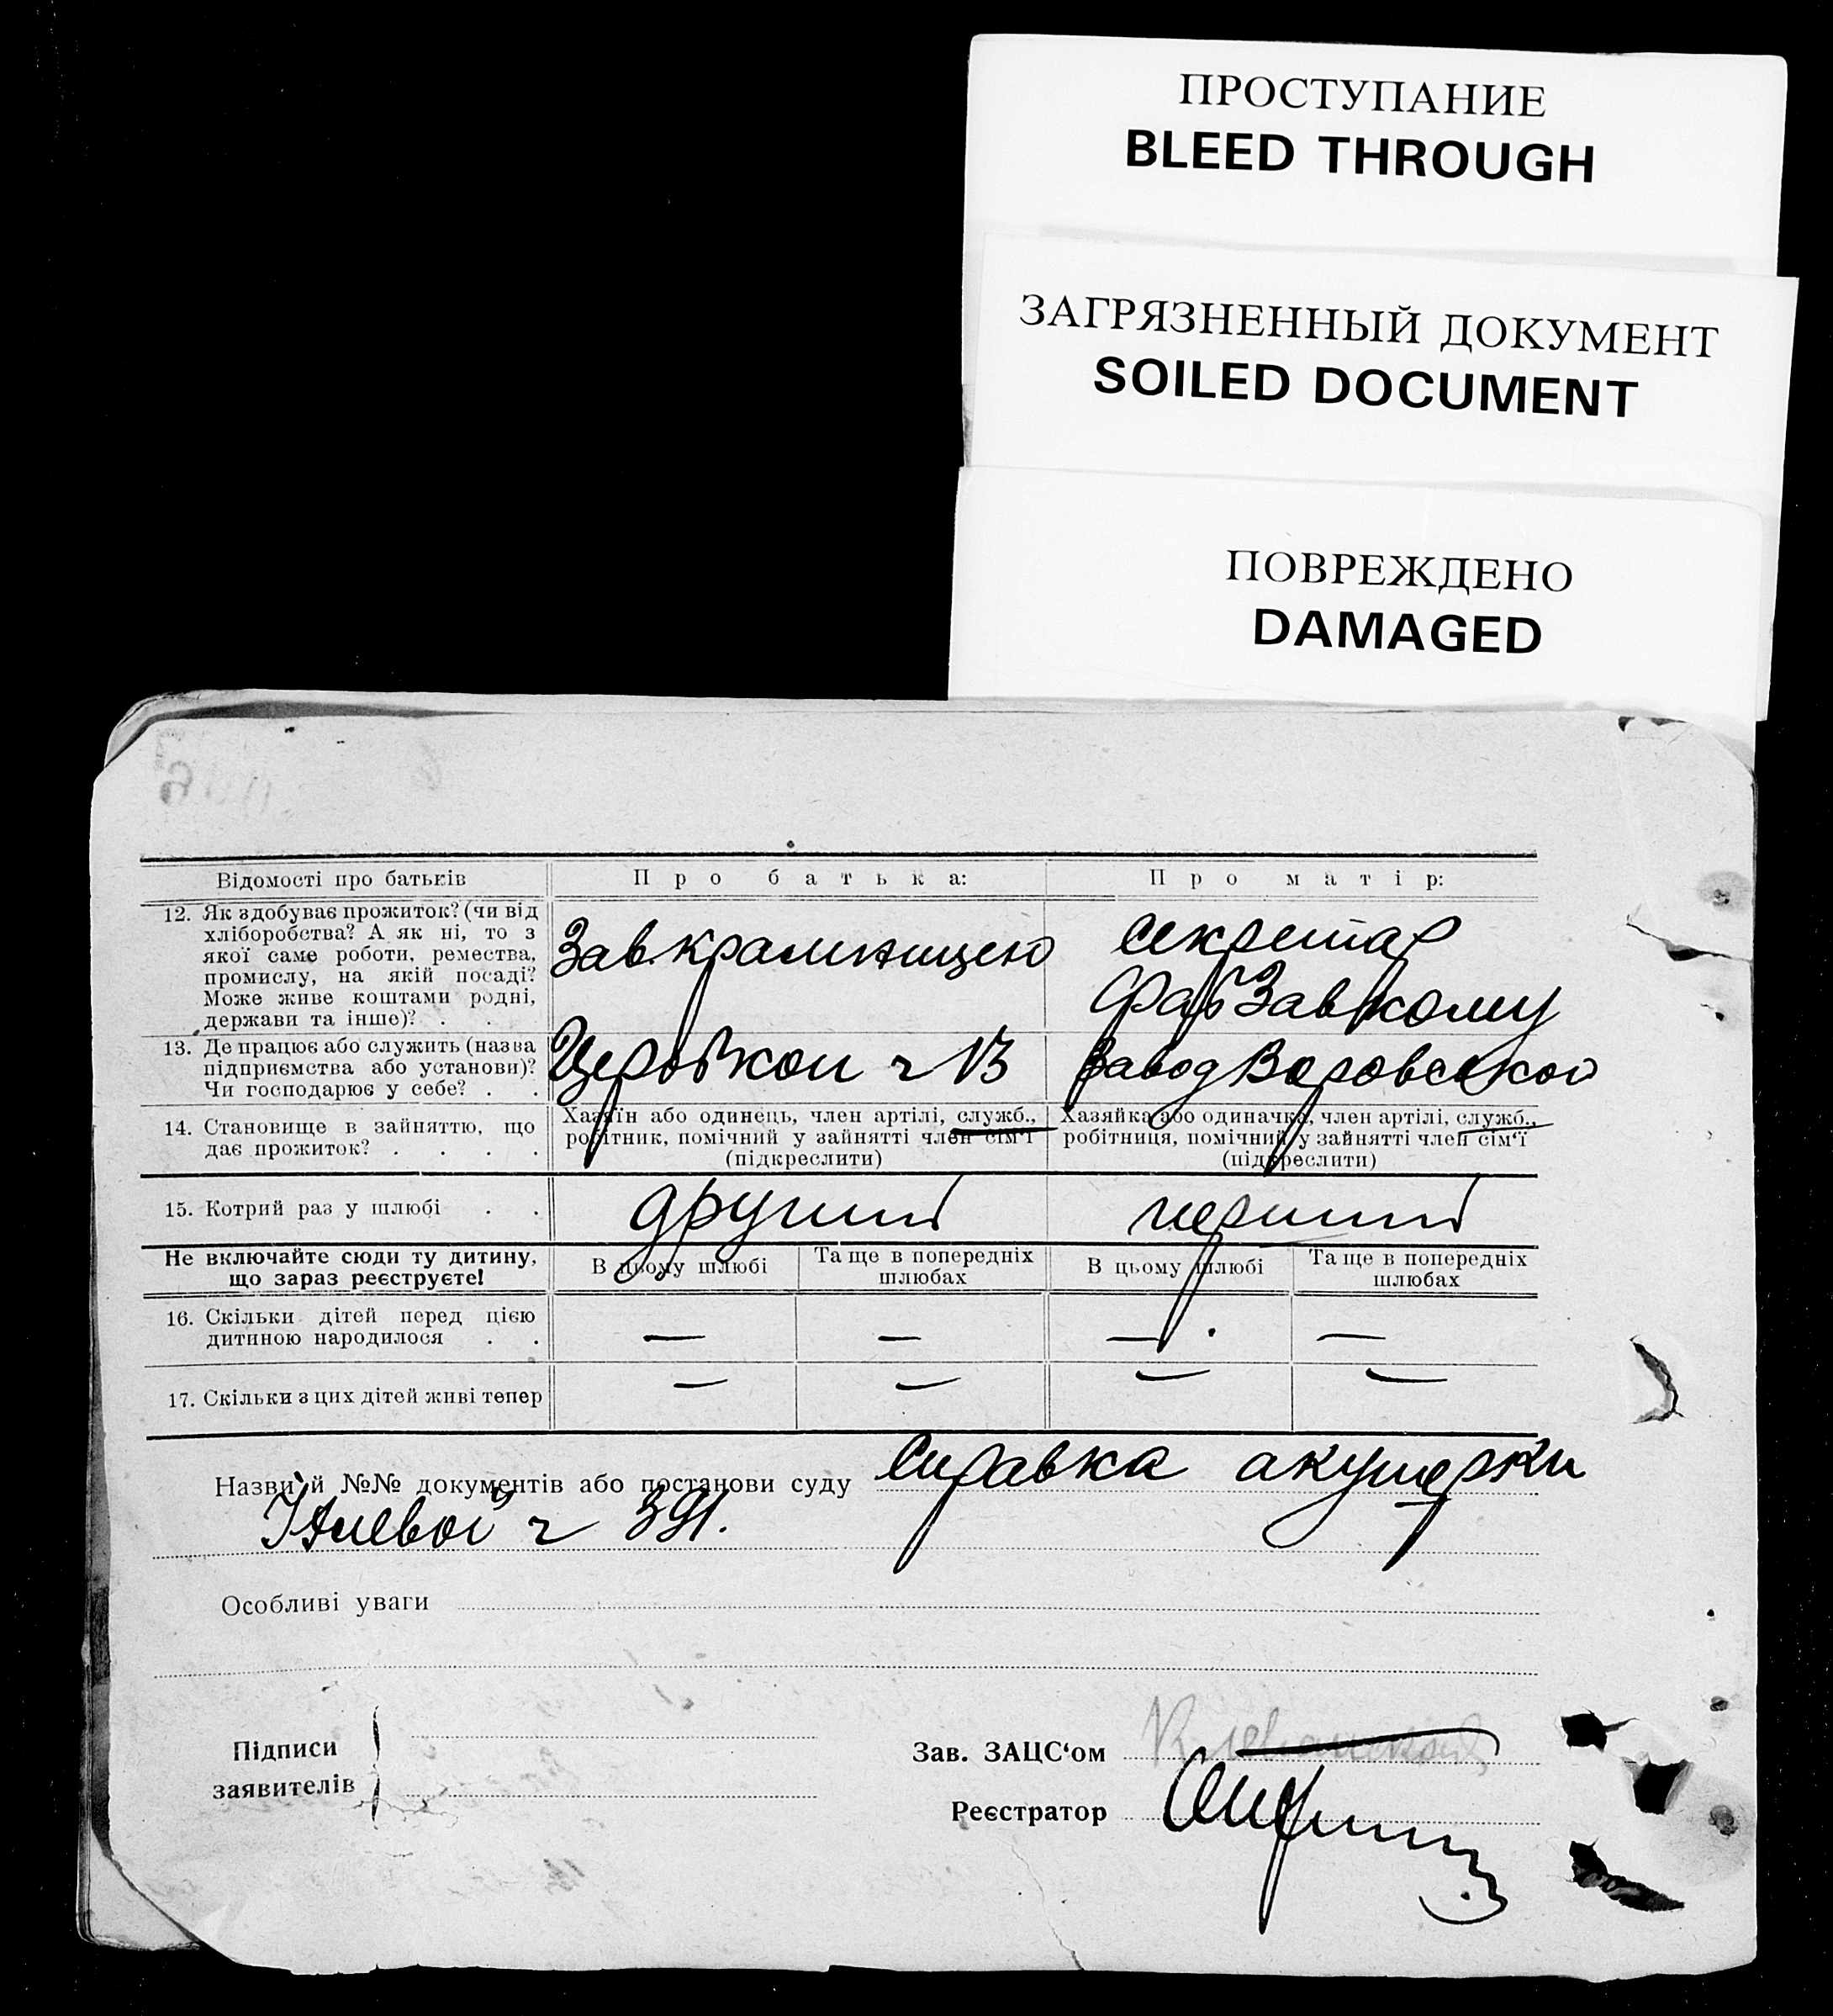 ПРОСТУПАНИЕ
BLEED THROUGH
ЗАГРЯЗНЕННЫЙ ДОКУМЕНТ
SOILED DOCUMENT
ПОВРЕЖДЕНО
DAMAGED
Відомості про батьків
Про батька:
Про матір:
12. Як здобуває прожиток? (чи від
хліборобства? А як ні, то з
якої саме роботи, ремества,
промислу, на якій посаді?
Може живе коштами родні,
держави та інше)? . .
Зав. крамницею
секретар
ФабЗавкому
13. Де працює або служить (назва
підприємства або установи)?
Чи господарює у себе? . .
Церобкоп ч 13
завод Воровського
14. Становище в зайняттю, що
дає прожиток? . . . .
Хазяїн або одинець, член артілі, служб.,
робітник, помічний у зайнятті член сім'ї
(підкреслити)
Хазяйка або одиначка, член артілі, служб.,
робітниця, помічний у зайнятті член сім'ї
(підкреслити)
15. Котрий раз у шлюбі . .
другий
перший
Не включайте сюди ту дитину,
що зараз реєструєте!
В цьому шлюбі
Та ще в попередніх
шлюбах
В цьому шлюбі
Та ще в попередніх
шлюбах
16. Скільки дітей перед цією
дитиною народилося . .
— — — —
17. Скільки з цих дітей живі тепер
— — — —
Назви й №№ документів або постанови суду Справка акушерки
ч 391.
Особливі уваги
Підписи
заявителів
Зав. ЗАЦС‘ом
Реєстратор